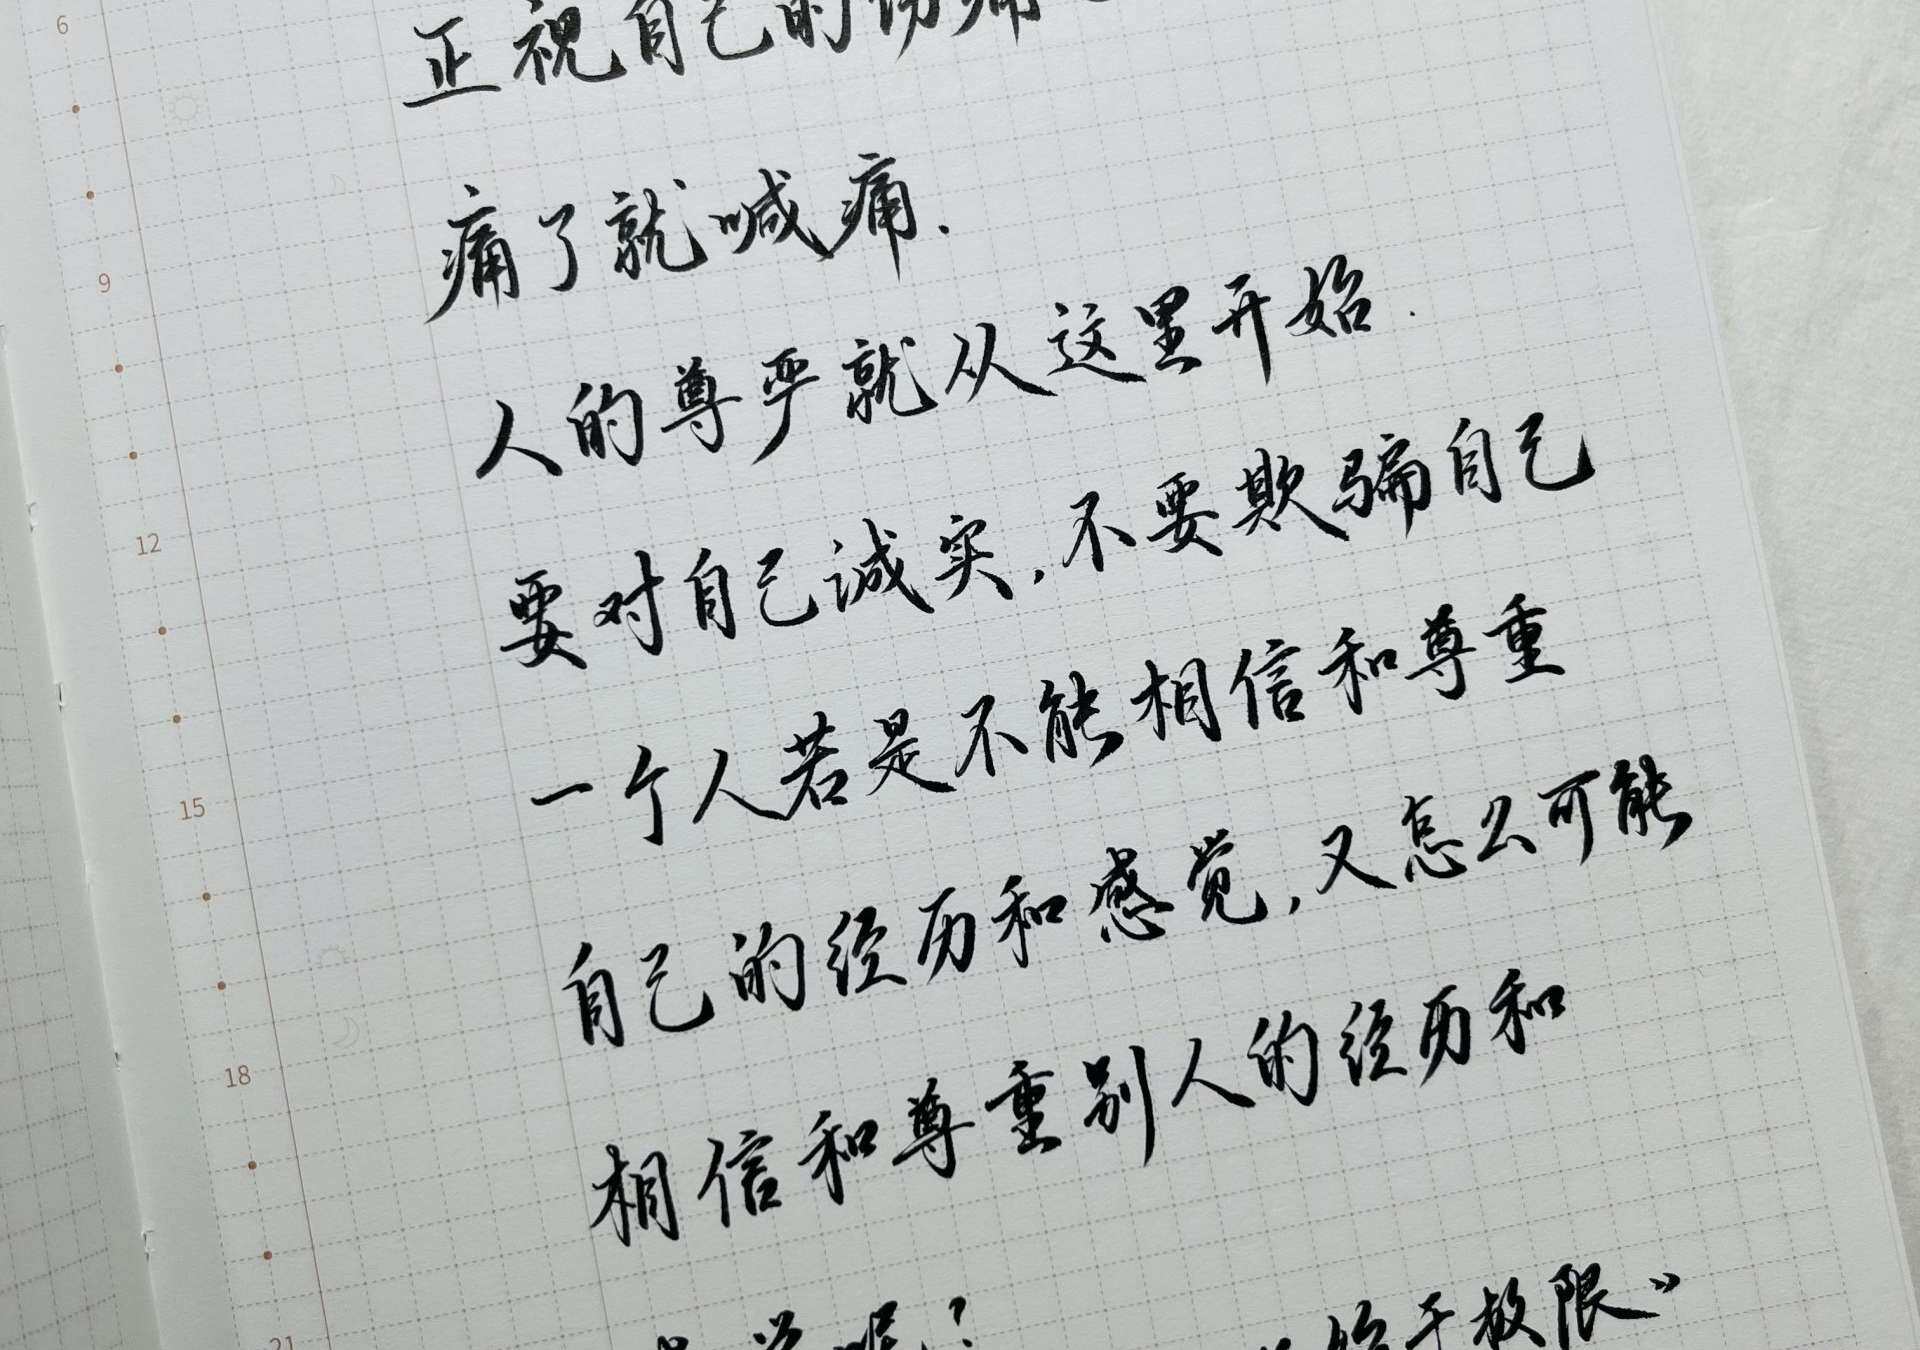 6
正视自己的伤痛
9
痛了就喊痛.
人的尊严就从这里开始.
12
要对自己诚实,不要欺骗自己
一个人若是不能相信和尊重
15
自己的经历和感觉,又怎么可能
18
相信和尊重别人的经历和
感觉呢?
始于极限》
21